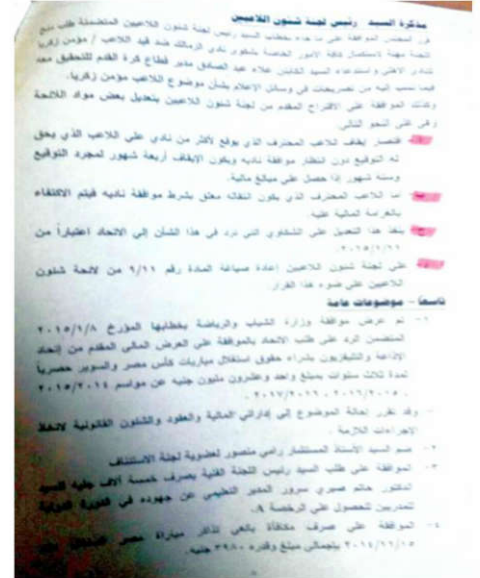 مذكرة السيد رئيس لجنة شئون اللاعبين
قرر المجلس الموافقة على ما جاء بخطاب السيد رئيس لجنة شئون اللاعبين المتضمنة طلب منح
اللجنة مهلة لاستكمال كافة الأمور الخاصة بشكوى نادي الزمالك ضد قيد اللاعب / مؤمن زكريا
للنادي الأهلي واستدعاء السيد الكابتن علاء عبد الصادق مدير قطاع كرة القدم للتحقيق معه
فيما نسب إليه من تصريحات في وسائل الإعلام بشأن موضوع اللاعب مؤمن زكريا.
وكذلك الموافقة على الاقتراح المقدم من لجنة شئون اللاعبين بتعديل بعض مواد اللائحة
وهي على النحو التالي
اقتصار إيقاف اللاعب المحترف الذي يوقع لأكثر من نادي على اللاعب الذي يحق
له التوقيع دون انتظار موافقة ناديه ويكون الإيقاف أربعة شهور لمجرد التوقيع
وستة شهور إذا حصل على مبالغ مالية.
أما اللاعب المحترف الذي يكون انتقاله معلق بشرط موافقة ناديه فيتم الاكتفاء
بالغرامة المالية عليه.
ينفذ هذا التعديل على الشكاوي التي ترد في هذا الشأن إلى الاتحاد اعتباراً من
على لجنة شئون اللاعبين إعادة صياغة المادة رقم ٩/١١ من لائحة شئون
اللاعبين على ضوء هذا القرار.
تاسعاً – موضوعات عامة
١- تم عرض موافقة وزارة الشباب والرياضة بخطابها المؤرخ ٢٠١٥/١/٨
المتضمن الرد على طلب الاتحاد بالموافقة على العرض المالي المقدم من إتحاد
الإذاعة والتليفزيون بشراء حقوق استغلال مباريات كأس مصر والسوبر حصرياً
لمدة ثلاث سنوات بمبلغ واحد وعشرون مليون جنيه عن مواسم ٢٠١٥/٢٠١٤
، ٢٠١٦/٢٠١٥ ، ٢٠١٧/٢٠١٦ .
وقد تقرر إحالة الموضوع إلى إدارتي المالية والعقود والشئون القانونية لاتخاذ
الإجراءات اللازمة .
٢- ضم السيد الأستاذ المستشار رامي منصور لعضوية لجنة الاستئناف
٣- الموافقة على طلب السيد رئيس اللجنة الفنية بصرف خمسة آلاف جنيه للسيد
الدكتور حاتم صبري سرور المدير التنظيمي عن جهوده في الدورة الدولية
للمدربين للحصول على الرخصة A.
٤- الموافقة على صرف مكافأة بائعي تذاكر مباراة مصر
٢٠١٤/١١/١٥ بإجمالي مبلغ وقدره ٣٩٨٠ جنيه .